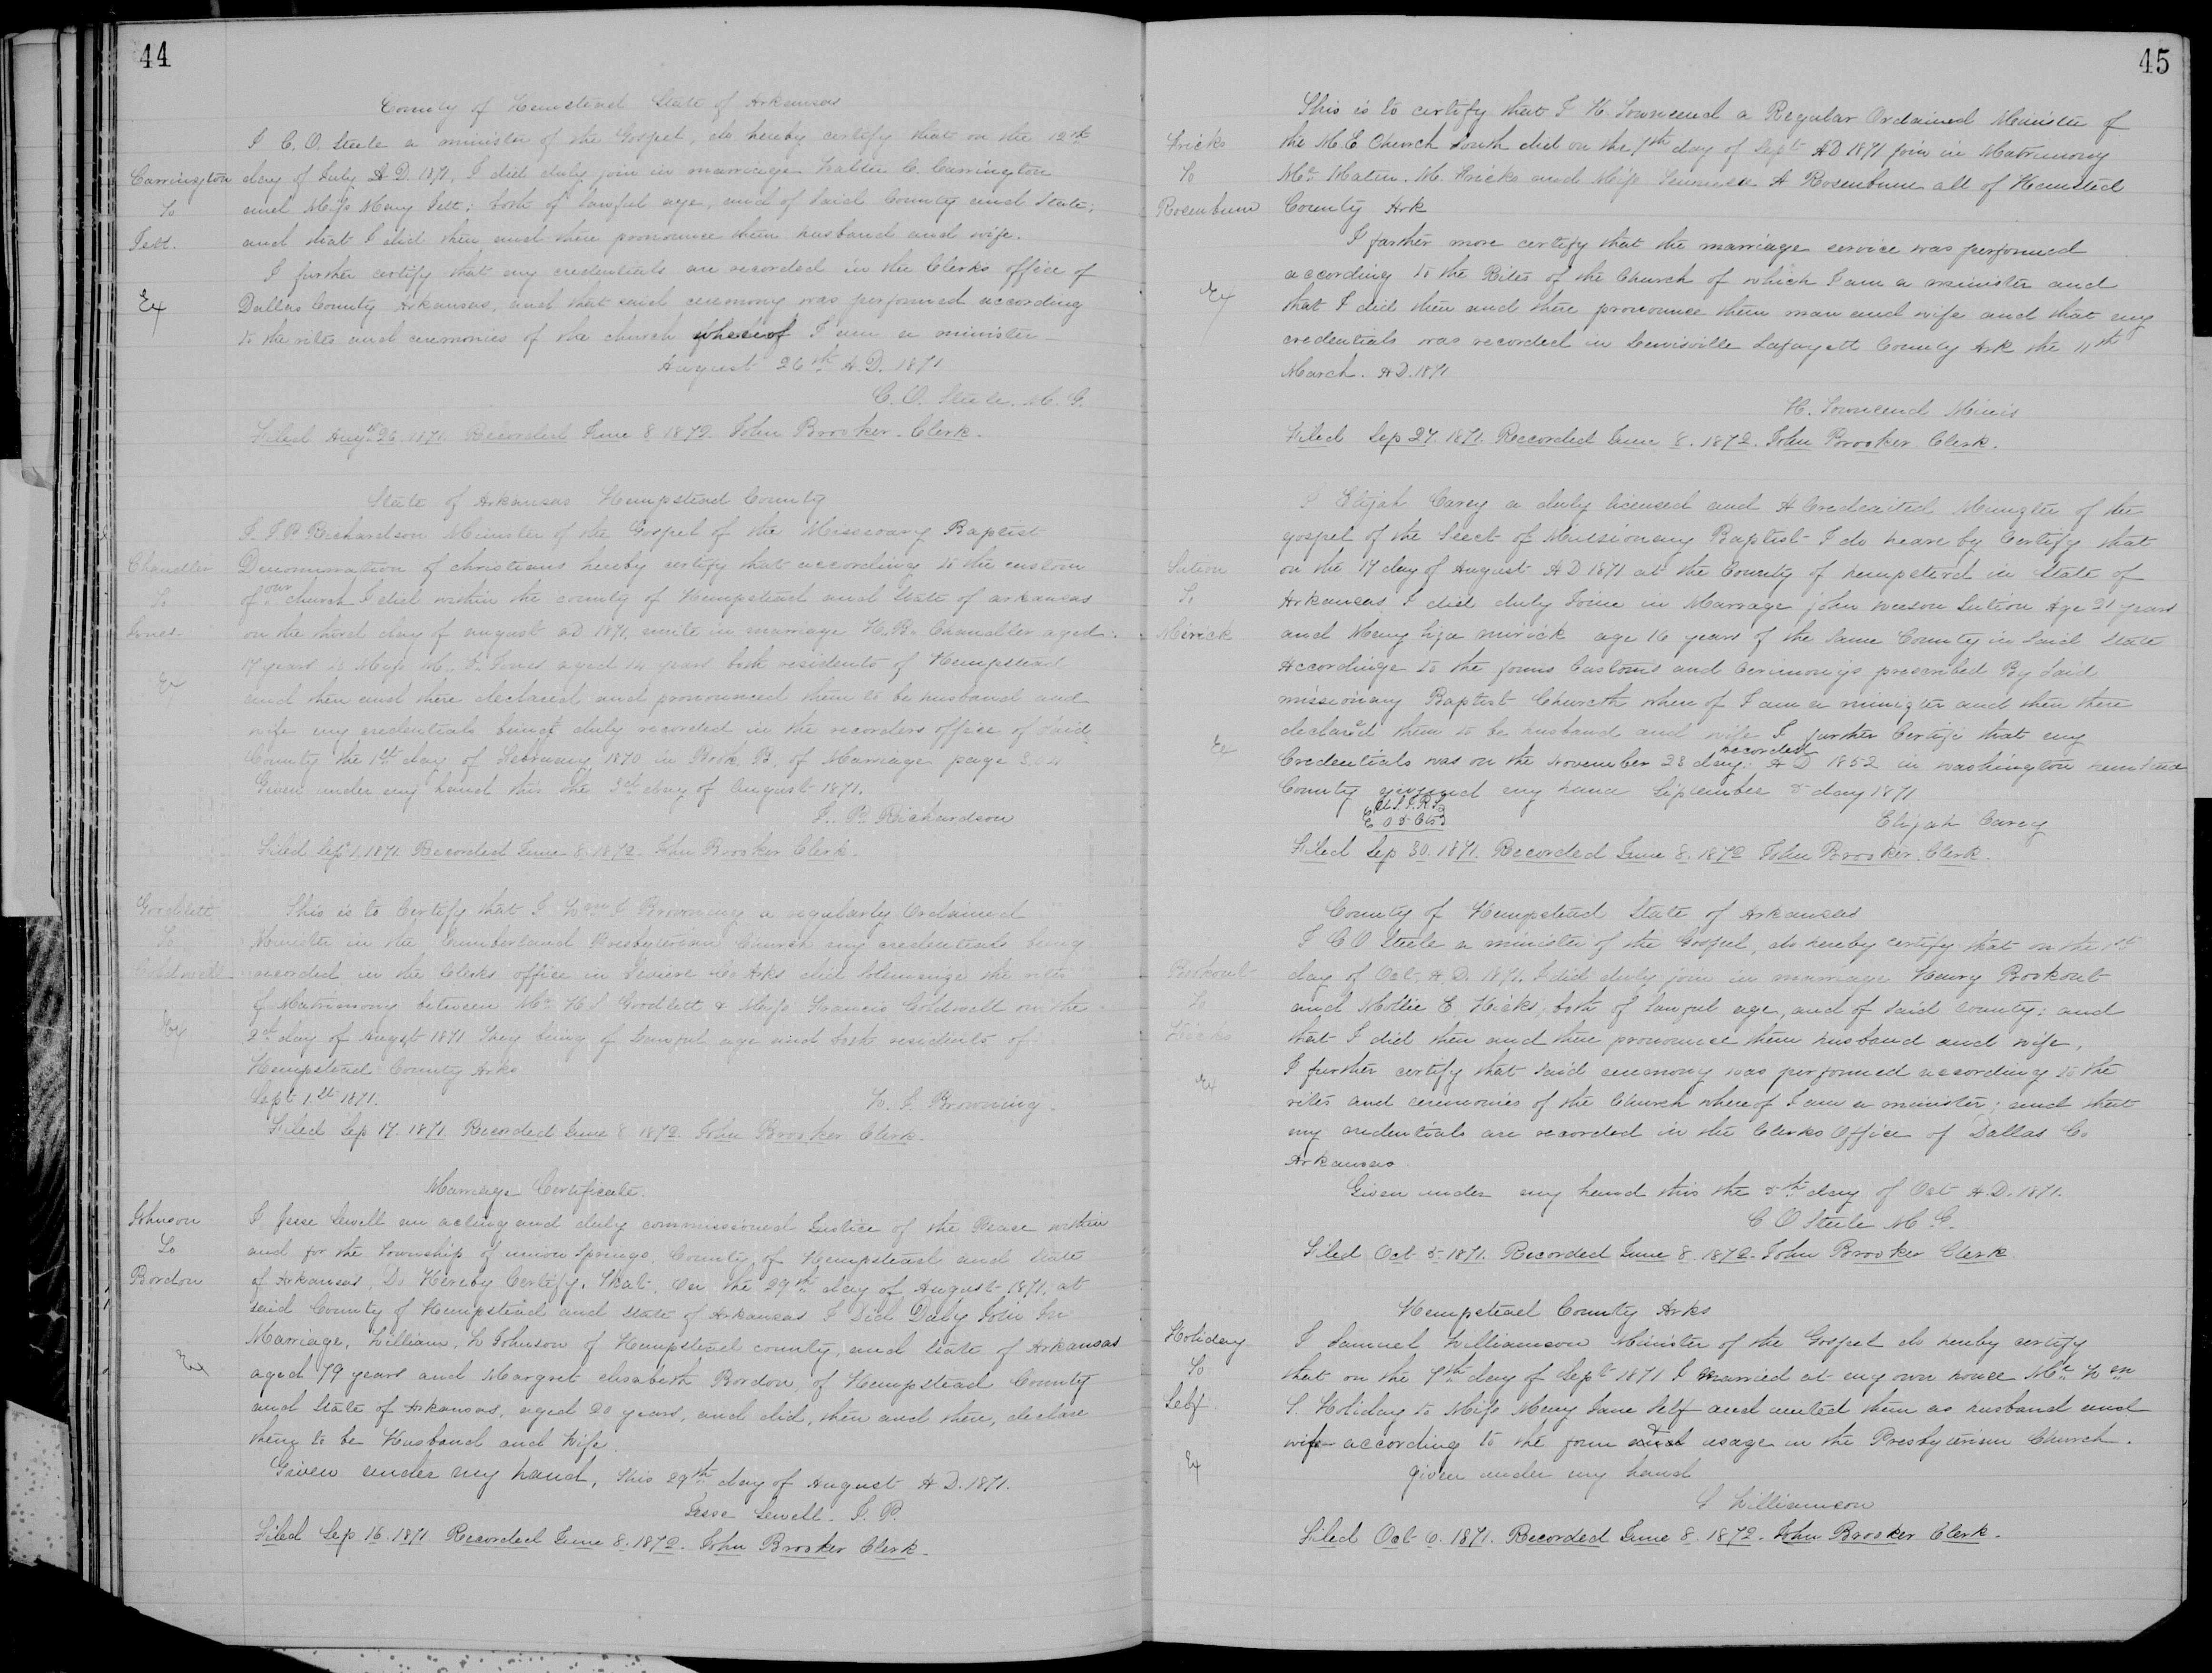 44
County of Hemstead State of Arkansas
I C. O. Steele a minister of the Gospel, do hereby certify that on the 12th
Carrington day of July A. D. 1871, I did duly join in marriage C. Carrington
To and Miss Mary Jett; both of lawful age, and of said County and State;
Jett. and that I did then and there pronounce them husband and wife.
I further certify that my credentials are recorded in the Clerks office of
Ex Dallas County Arkansas, and that said ceremony was performed according
to the rites and ceremonies of the church whereof I am a minister—
August 26th A. D. 1871
C. O. Steele. M. G.
Filed Augst 26 1871. Recorded June 8 1872. John Brooker. Clerk.
State of Arkansas Hempstead County
I. J. P. Richardson Minister of the Gospel of the Baptist
Chandler Denomination of christians hereby certify that according to the custom
To of our church I did within the county of Hempstead and State of arkansas
Jones on the third day of august AD 1871, unite in marriage H. B. Chandler aged
17 years to Miss M. Jones aged 14 years both residents of Hempstead
Ex and then and there declared and pronounced them to be husband and
wife my credentials being duly recorded in the recorders office of Said
County the 1st day of February 1870 in Book B. of Marriage page 304
Given under my hand this the 3d day of August 1871.
J. P. Richardson
Filed Sept 1, 1871. Recorded June 8, 1872. John Brooker Clerk.
Goodlett This is to Certify that I Wm Browning a regularly Ordained
To Minister in the Cumberland Presbyterian Church my credentials being
Coldwell recorded in the Clerks office in Sevier Co Arks did Solemnize the rites
of Matrimony between Mr. H. S. Goodlett & Miss Francis Coldwell on the
Ex 2d day of Augst 1871 They being of lawful age and both residents of
Hempstead County Arks
Sept 1st 1871.
Browning
Filed Sep 17. 1871. Recorded June 8 1872. John Brooker Clerk.
Marriage Certificate.
Johnson I Jesse Sewell an acting and duly commissioned Justice of the Pease within
To and for the Township of union Springs, County of Hempstead and State
Bordon of Arkansas, Do Hereby Certify, That, On the 29th day of August 1871, at
said County of Hempstead and State of Arkansas I Did Duly Join In
Marriage, William, W Johnson of Hempstead county, and State of Arkansas
Ex aged 79 years and Margret elisabeth Bordon, of Hempstead County
and State of Arkansas, aged 20 years, and did, then and there, declare
them to be Husband and Wife.
Given under my hand, this 29th day of August A. D. 1871.
Jesse Sewell. J. P.
Filed Sep 16. 1871 Recorded June 8. 1872. John Brooker Clerk.
45
This is to certify that I H. Townsend a Regular Ordained Minister of
Hricks the M. E. Church South did on the 7th day of Sept AD 1871 join in Matrimony
To Mr M. Hricks and Miss A Rosenbum all of Hemsted
Rosenbum County Ark
I farther more certify that the marriage service was performed
according to the Rites of the Church of which I am a minister and
Ex that I did then and there pronounce them man and wife and that my
credentials was recorded in Lewisville Lafayett County Ark the 11th
March. AD. 1871
H. Townsend Minis
Filed Sep 27. 1871. Recorded June 8. 1872. John Brooker Clerk.
I Elijah Carey a duly licensed and A Credcaited Minizter of the
gospel of the Seect of Missionary Baptist I do heare by Certify that
Sution on the 17 day of August AD 1871 at the County of hempsterd in State of
To Arkansas I did duly Joine in Marrage john Sution Age 21 years
Mirick and Mary liza mirick age 16 years of the Same County in Said State
Accordinge to the forms Customs and Cerimonys prescribed By Said
missionary Baptist Church when of I am a minizter and then there
declared them to be husband and wife I further Certify that my
Ex Credentials was on the November 23 day recorded AD 1852 in washington
County my hand September 5 day 1871
Elijah Carey
Filed Sep 30. 1871. Recorded June 8. 1872 John Brooker Clerk.
County of Hempstead State of Arkansas
I C O Steele a minister of the Gospel, do hereby certify that on the 1st
Bookout day of Oct. A. D. 1871. I did duly join in marriage Henry Bookout
To and Mollie E. Hicks, both of lawful age, and of said county; and
Hicks that I did then and there pronounce them husband and wife,
Ex I further certify that said ceremony was performed according to the
rites and ceremonies of the Church whereof I am a minister; and that
my credentials are recorded in the Clerks Office of Dallas Co
Arkansas
Given under my hand this the 5th day of Oct A. D. 1871.
C O Steele M. G.
Filed Oct 5 1871. Recorded June 8. 1872. John Brooker Clerk
Hempstead County Arks
Holiday I Samuel Williamson Minister of the Gospel do hereby certify
To that on the 7th day of Sept 1871 I married at my own house Mr. Wm
Self S. Holiday to Miss Mary Jane Self and united them as husband and
wife according to the form & usage in the Presbyterian Church.
Ex given under my hand
S Williamson
Filed Oct 6. 1871. Recorded June 8. 1872. John Brooker Clerk.